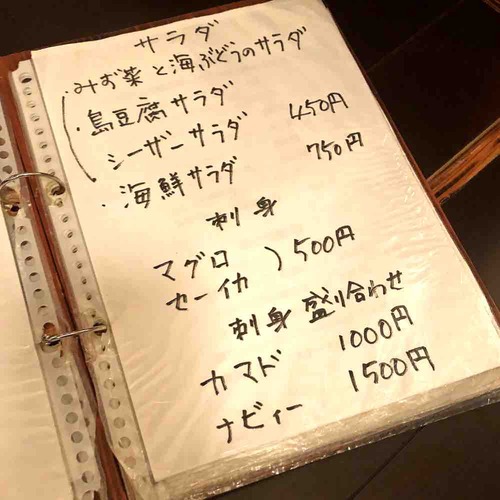 サラダ
・みず菜と海ぶどうのサラダ
・島豆腐サラダ
シーザーサラダ 450円
・海鮮サラダ 750円
刺身
マグロ
セーイカ ) 500円
刺身盛り合わせ
カマド 1000円
ナビィー 1500円